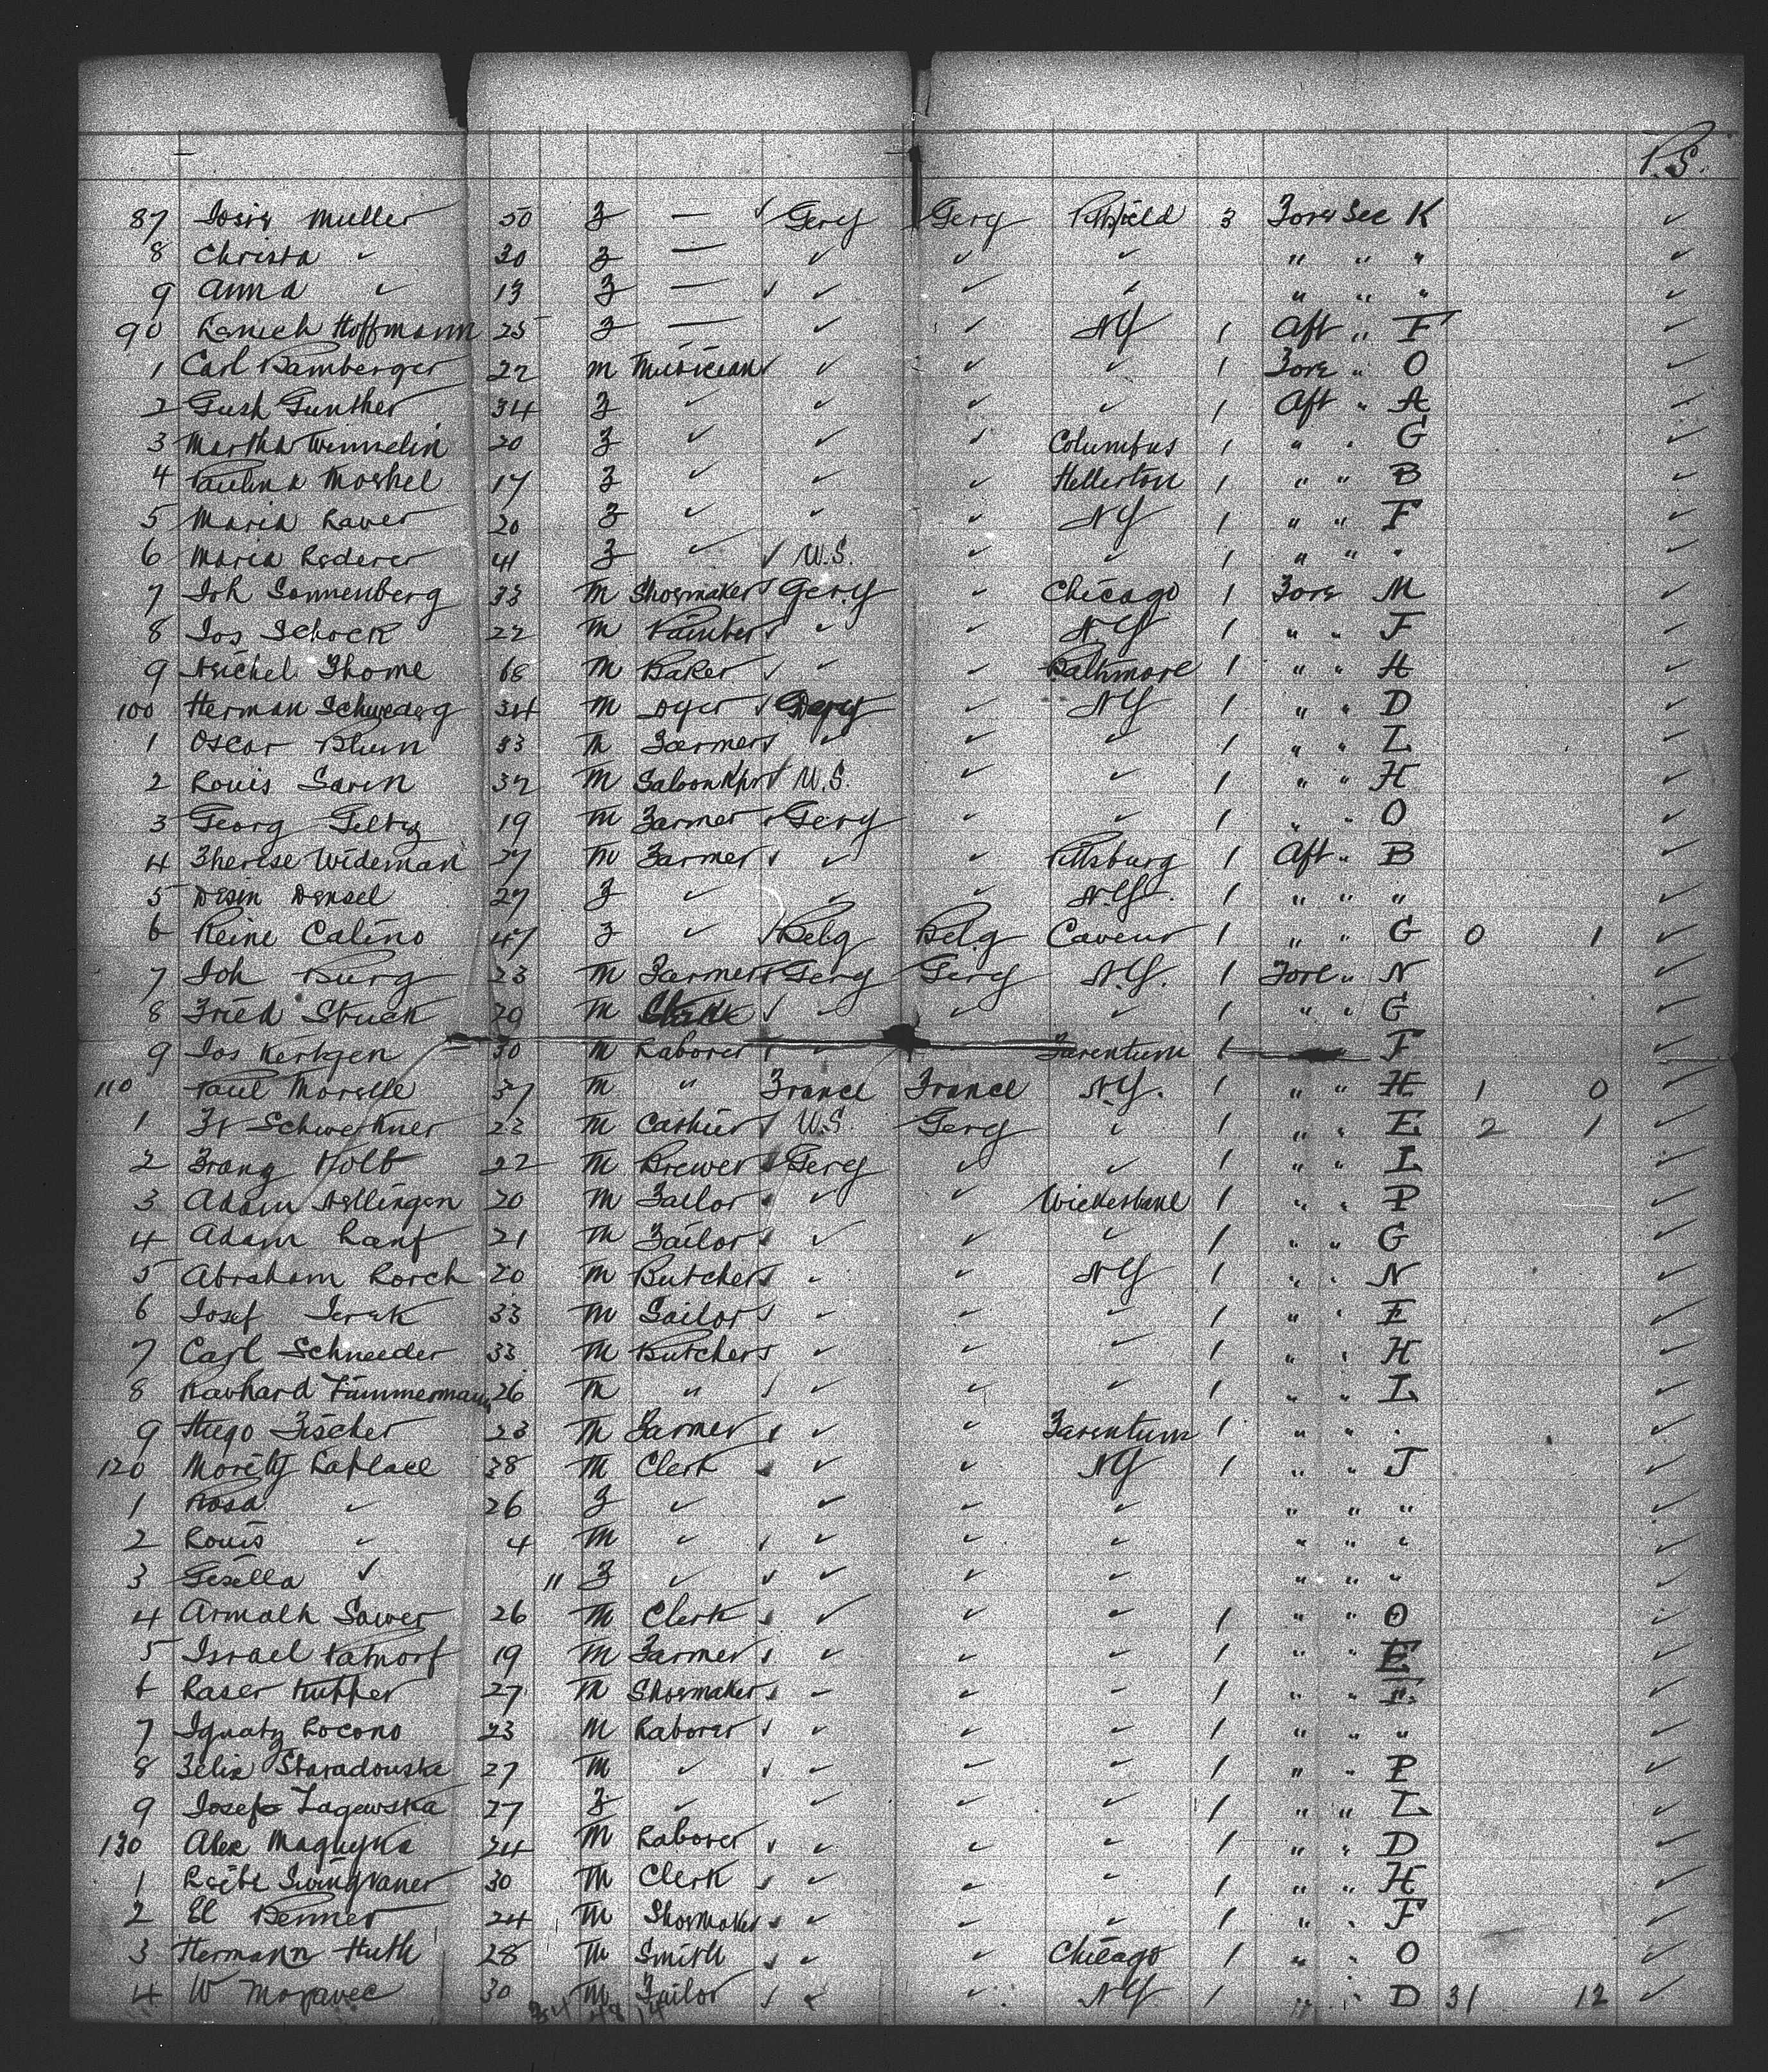 P.S.
87 Josie Muller 50 F — ✓ Gery Gery Pittsfield 3 Fore Sec K ✓
8 Christa ✓ 30 F — ✓ ✓ ✓ " " " ✓
9 Anna ✓ 19 F — ✓ ✓ ✓ ✓ " " " ✓
90 Hoffmann 25 F — ✓ ✓ NY 1 Aft " F ✓
1 Carl Bamberger 22 M Musician ✓ ✓ ✓ ✓ 1 Fore " O ✓
2 Gust Gunther 34 F ✓ ✓ ✓ ✓ 1 Aft " A ✓
3 Martha 20 F ✓ ✓ ✓ Columbus 1 " " G ✓
4 Paulina Moshel 17 F ✓ ✓ ✓ Hellerton 1 " " B ✓
5 Maria Lauer 20 F ✓ ✓ ✓ NY 1 " " F ✓
6 Maria Lederer 41 F ✓ ✓ U.S. ✓ ✓ 1 " " " ✓
7 Joh Sonnenberg 33 M Shoemaker ✓ Gery ✓ Chicago 1 Fore M ✓
8 Jos Schock 22 M Painter ✓ ✓ ✓ NY 1 " " F ✓
9 Thome 68 M Baker ✓ ✓ ✓ Baltimore 1 " " H ✓
100 Herman 34 M Dyer ✓ Gery ✓ NY 1 " " D ✓
1 Oscar Blum 33 M Farmer ✓ ✓ ✓ ✓ 1 " " L ✓
2 Louis Saren 32 M Saloonkpr ✓ U.S. ✓ ✓ 1 " " H ✓
3 Georg 19 M Farmer ✓ Gery ✓ ✓ 1 " " O ✓
4 Therese Wideman 27 M Farmer ✓ ✓ ✓ Pittsburg 1 Aft " B ✓
5 Densel 27 F ✓ ✓ ✓ N.Y. 1 " " " ✓
6 Reine Calino 47 F ✓ ✓ Belg Belg 1 " " G 0 1 ✓
7 Joh Burg 23 M Farmer ✓ Gery Gery N.Y. 1 Fore " N ✓
8 Fried Struck M Clerk ✓ ✓ ✓ ✓ 1 " " G ✓
9 Jos Kerkgen 30 M Laborer ✓ ✓ ✓ Tarentum 1 " F ✓
110 Paul Morelle 37 M " France France N.Y. 1 " " H 1 0 ✓
1 Fr Schwerkner 23 M Cashier ✓ U.S. Gery ✓ 1 " " E 2 1 ✓
2 Franz Kolb 22 M Brewer ✓ Gery ✓ ✓ 1 " " L ✓
3 Adam 20 M Tailor ✓ ✓ ✓ 1 " " P ✓
4 Adam Ranf 21 M Tailor ✓ ✓ ✓ ✓ 1 " " G ✓
5 Abraham Lorch 20 M Butcher ✓ ✓ ✓ NY 1 " " N ✓
6 Josef 33 M Sailor ✓ ✓ ✓ ✓ 1 " " E ✓
7 Carl Schneeder 33 M Butcher ✓ ✓ ✓ ✓ 1 " " H ✓
8 Zimmermann 26 M " ✓ ✓ ✓ ✓ 1 " " L ✓
9 Hugo Fischer 23 M Farmer ✓ ✓ ✓ Tarentum 1 " " " ✓
120 Moritz Laplace 38 M Clerk ✓ ✓ ✓ NY 1 " " J ✓
1 Rosa ✓ 26 F ✓ ✓ ✓ ✓ " " " ✓
2 Louis ✓ 4 M ✓ ✓ ✓ ✓ ✓ " " " ✓
3 Gisella ✓ 11 F ✓ ✓ ✓ ✓ ✓ " " " ✓
4 Sower 26 M Clerk ✓ ✓ ✓ ✓ 1 " " O ✓
5 Israel 19 M Farmer ✓ ✓ ✓ ✓ 1 " " E ✓
6 Laser Kupfer 27 M Shoemaker ✓ ✓ ✓ ✓ 1 " " ✓
7 Ignatz Locono 23 M Laborer ✓ ✓ ✓ ✓ 1 " " " ✓
8 Felix Staradouske 27 M ✓ ✓ ✓ ✓ ✓ 1 " " P ✓
9 Josef Zagewska 27 F ✓ ✓ ✓ ✓ 1 " " L ✓
130 Alex 24 M Laborer ✓ ✓ ✓ ✓ 1 " " D ✓
1 Leibe 30 M Clerk ✓ ✓ ✓ ✓ 1 " " H ✓
2 El Benner 24 M Shoemaker ✓ ✓ ✓ ✓ 1 " " F ✓
3 Hermann Huth 28 M Smith ✓ ✓ ✓ Chicago 1 " " O ✓
4 W Moravec 30 M Tailor ✓ ✓ ✓ NY 1 " " D 31 12 ✓
34 48 14